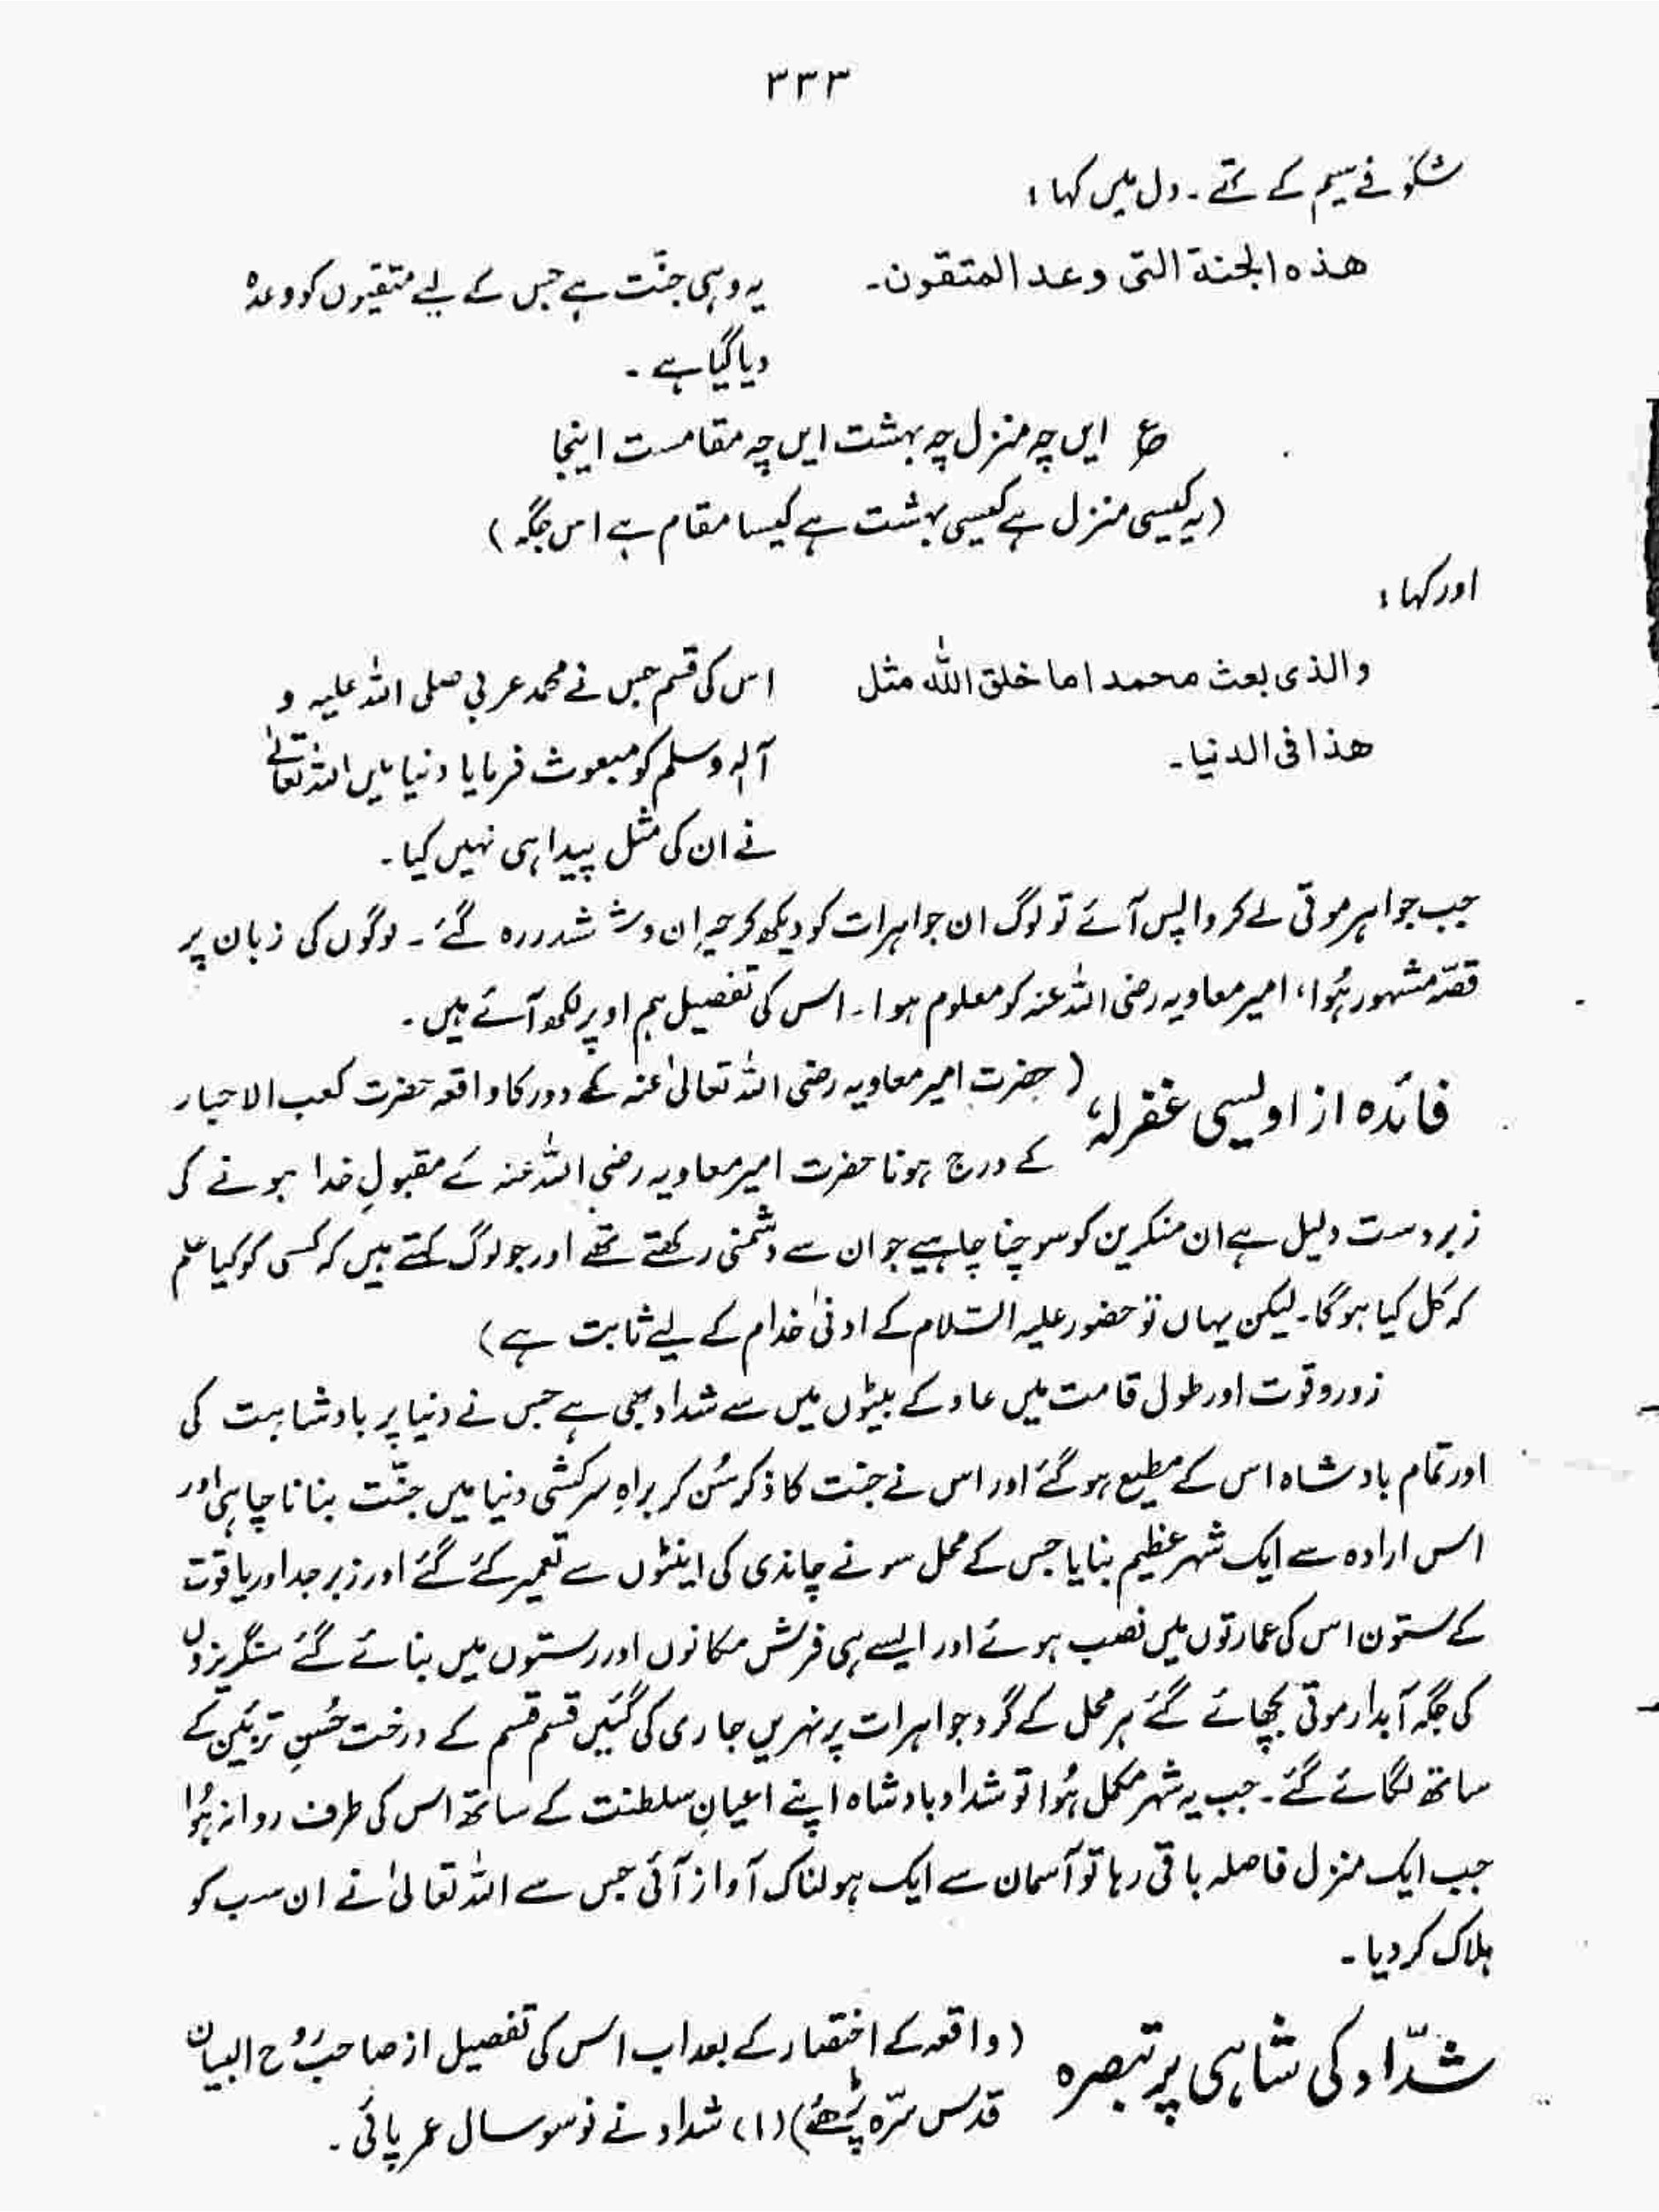 ۳۳۳
شگوفے سیم کے تھے۔ دل میں کہا:
هذه الجنة التی وعد المتقون۔ یہ وہی جنّت ہے جس کے لیے متقیوں کو وعدہ
دیا گیا ہے۔
ع ایں چہ منزل چہ بہشت ایں چہ مقامست اینجا
(یہ کیسی منزل ہے کیسی بہشت ہے کیسا مقام ہے اس جگہ)
اور کہا:
والذی بعث محمدا ما خلق اللہ مثل اس کی قسم جس نے محمد عربی صلی اللہ علیہ و
هذا فی الدنیا۔ آلہ وسلم کو مبعوث فرمایا دنیا میں اللہ تعالٰے
نے ان کی مثل پیدا ہی نہیں کیا۔
جب جواہر موتی لے کر واپس آئے تو لوگ ان جواہرات کو دیکھ کر حیران و ششدر رہ گئے۔ لوگوں کی زبان پر
قصّہ مشہور ہُوا، امیر معاویہ رضی اللہ عنہ کو معلوم ہوا۔ اس کی تفصیل ہم اوپر لکھ آئے ہیں۔
فائدہ از اویسی غفرلہٗ (حضرت امیر معاویہ رضی اللہ تعالیٰ عنہ کے دور کا واقعہ حضرت کعب الاحبار
کے درج ہونا حضرت امیر معاویہ رضی اللہ عنہ کے مقبولِ خدا ہونے کی
زبردست دلیل ہے ان منکرین کو سوچنا چاہیے جو ان سے دشمنی رکھتے تھے اور جو لوگ کہتے ہیں کہ کسی کو کیا علم
کہ کل کیا ہوگا۔ لیکن یہاں تو حضور علیہ السّلام کے ادنیٰ خدام کے لیے ثابت ہے)
زور و قوت اور طول قامت میں عاد کے بیٹوں میں سے شداد بھی ہے جس نے دنیا پر بادشاہت کی
اور تمام بادشاہ اس کے مطیع ہو گئے اور اس نے جنت کا ذکر سُن کر براہِ سرکشی دنیا میں جنّت بنانا چاہی اور
اس ارادہ سے ایک شہر عظیم بنایا جس کے محل سونے چاندی کی اینٹوں سے تعمیر کئے گئے اور زبرجد اور یاقوت
کے ستون اس کی عمارتوں میں نصب ہوئے اور ایسے ہی فرش مکانوں اور رستوں میں بنائے گئے سنگریزوں
کی جگہ آبدار موتی بچھائے گئے ہر محل کے گرد جواہرات پر نہریں جاری کی گئیں قسم قسم کے درخت حُسنِ تزئین کے
ساتھ لگائے گئے۔ جب یہ شہر مکمل ہُوا تو شداد بادشاہ اپنے اعیانِ سلطنت کے ساتھ اس کی طرف روانہ ہُوا
جب ایک منزل فاصلہ باقی رہا تو آسمان سے ایک ہولناک آواز آئی جس سے اللہ تعالیٰ نے ان سب کو
ہلاک کر دیا۔
شدّاد کی شاہی پر تبصرہ (واقعہ کے اختصار کے بعد اب اس کی تفصیل از صاحب روح البیان
قدس سرّہ پڑھئے) (۱) شداد نے نو سو سال عمر پائی۔